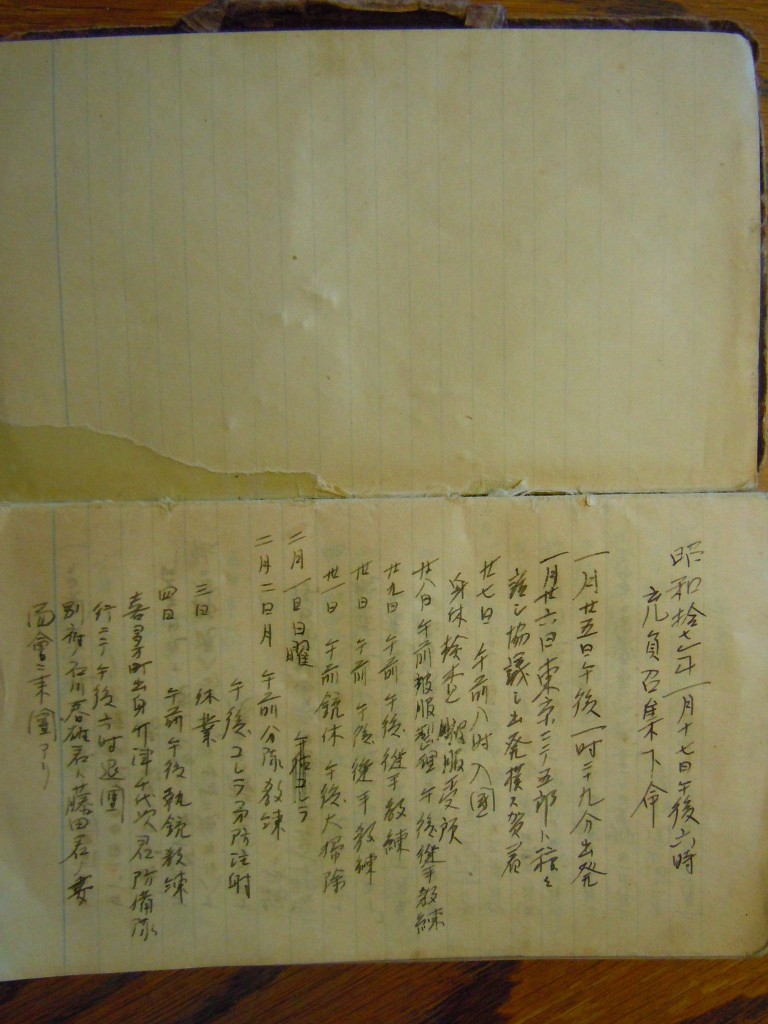 昭和拾七年一月十七日午後六時
充員召集下命
一月廿五日午後一時二十九分出発
一月廿六日東京ニテ五郎ト種々
協議シ出発横ス賀着
廿七日 午前八時入団
身体検査 被服受領
廿八日 午前被服整理 午後徒手教練
廿九日 午前午後徒手教練
廿日 午前午后徒手教練
廿一日 午前銃休 午後大掃除
二月一日日曜 コレラ
二月二日月 午前分隊教練
午後コレラ予防注射
三日 休業
四日 午前午後執銃教練
喜多町出身 津千代次君防備隊
行ニテ午後六時退團
別府、石川春雄君ト藤田君ノ妻
面會ニ来團アリ